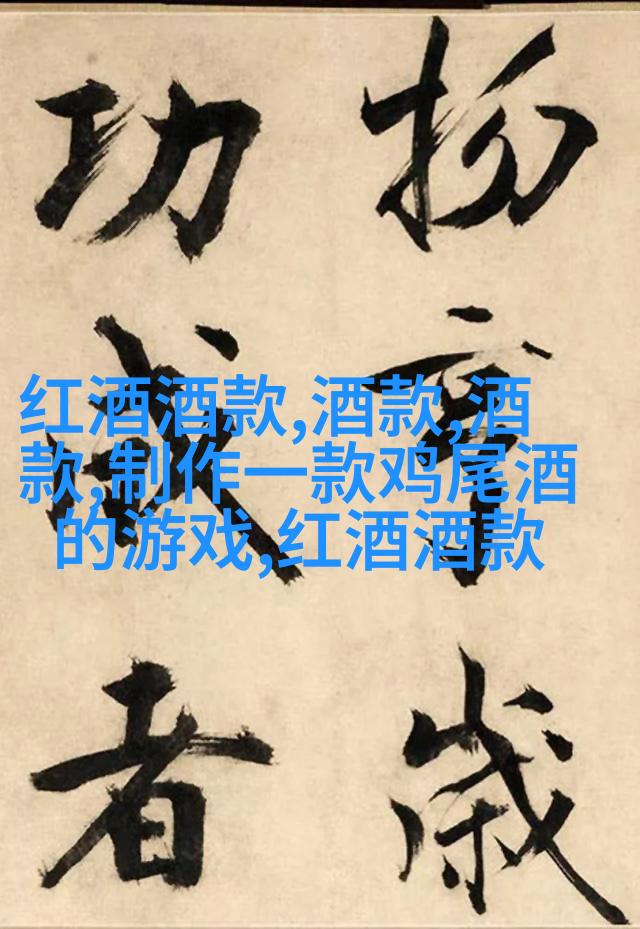 歲
功成者
红酒酒款,酒款,酒
款,制作一款鸡尾酒
的游戏,红酒酒款